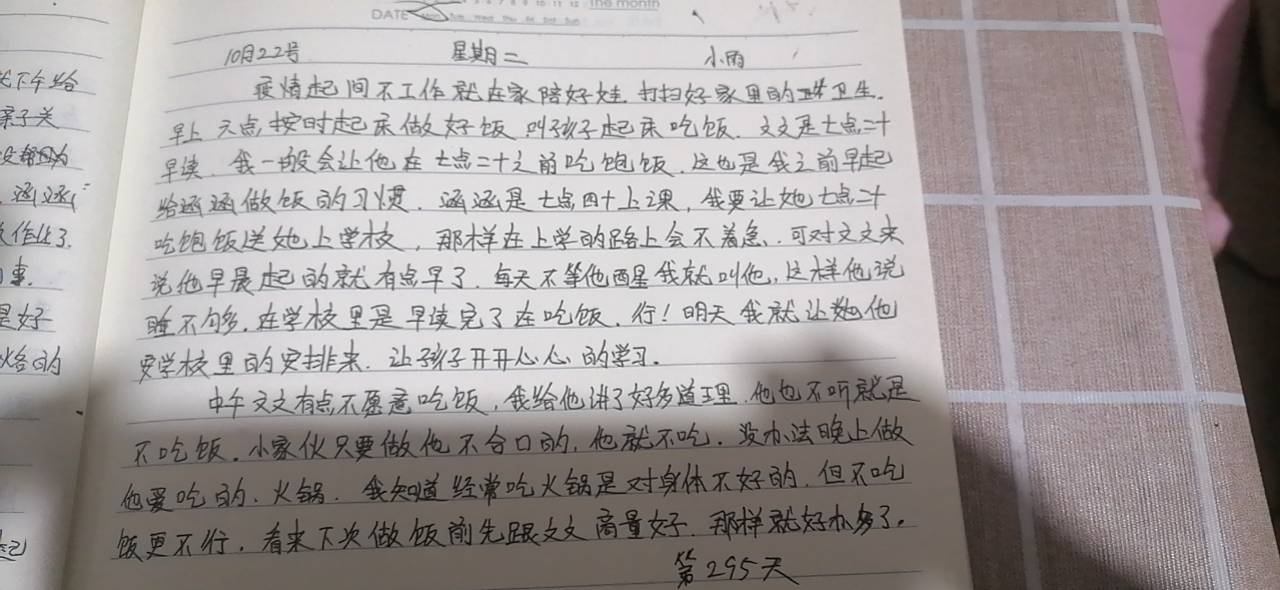 the month
DATE Mon Tue Wed Thu Fri Sat Sun
10月22号 星期二 小雨
疫情起间不工作就在家陪好娃.打扫好家里的卫生.
早上六点按时起床做好饭叫孩子起床吃饭.文文是七点二十
早读.我一般会让他在七点二十之前吃饱饭.这也是我之前早起
给涵涵做饭的习惯.涵涵是七点四十上课,我要让她七点二十
吃饱饭送她上学校,那样在上学的路上会不着急.可对文文来
说他早晨起的就有点早了.每天不等他醒我就叫他,这样他说
睡不够多.在学校里是早读完了在吃饭.行!明天我就让他
安学校里的安排来.让孩子开开心心的学习.
中午文文有点不愿意吃饭,我给他讲了好多道理.他也不听就是
不吃饭.小家伙只要做他不合口的,他就不吃.没办法晚上做
他爱吃的.火锅.我知道经常吃火锅是对身体不好的.但不吃
饭更不行.看来下次做饭前先跟文文商量好.那样就好办多了.
第295天
下午给
亲子关
涵涵
作业了.
事.
是好
的
起